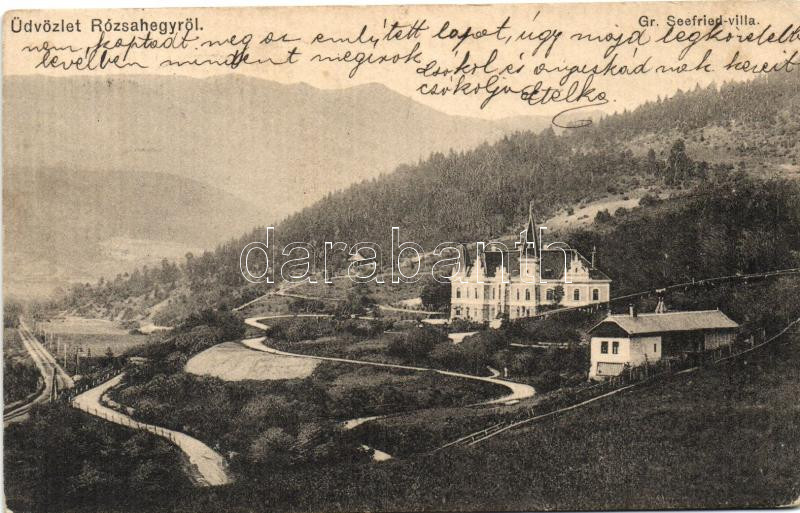 Üdvözlet Rózsahegyről.
Gr. Seefried-villa.
nem kaptad meg az említett lapot, úgy majd legközelebb
levelben mindent megirok
csókol és anyuskád nak kereit
csókolja Etelka
darabanth